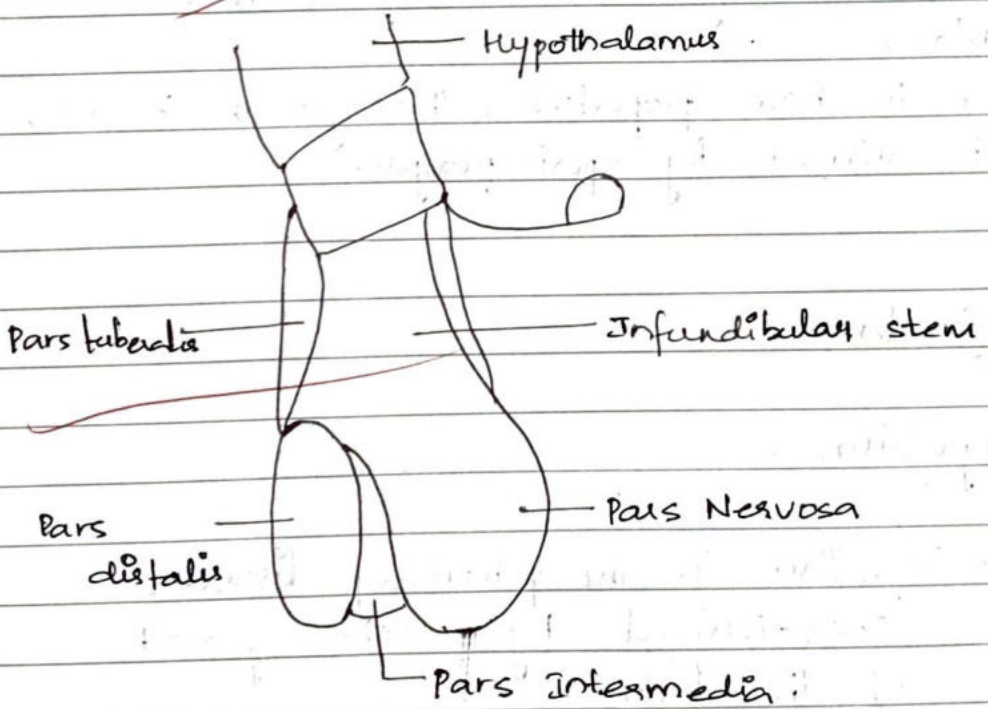 Hypothalamus
Pars tuberalis
Infundibular stem
Pars
distalis
Pars Nervosa
Pars Intermedia